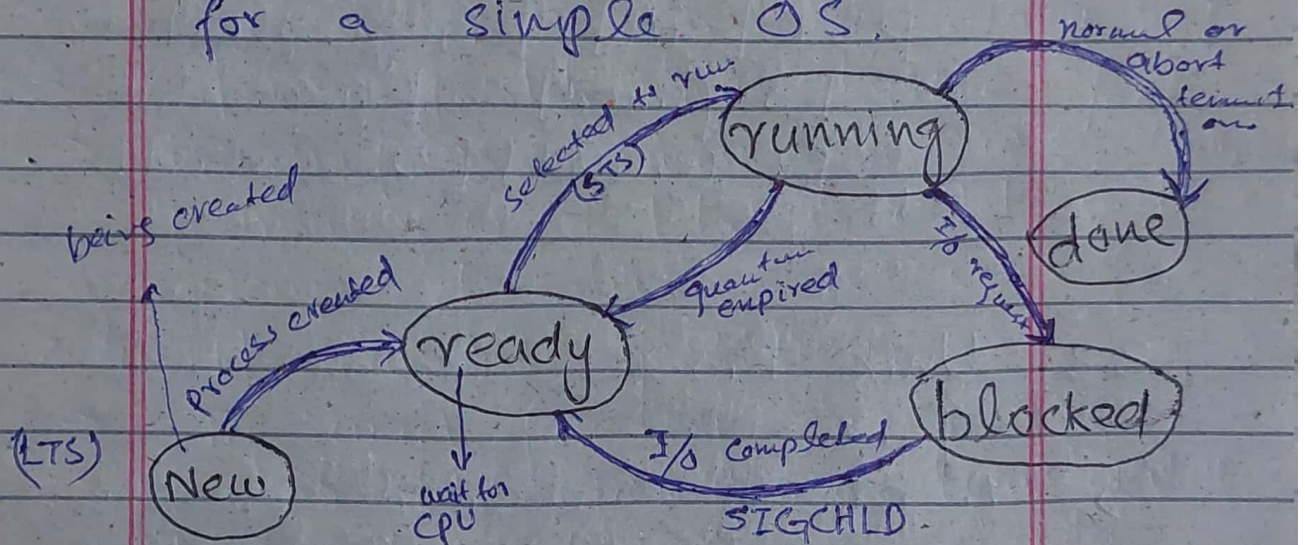 for a simple OS.
normal or
abort
selected to run
(STS)
running
being created
done
Process created
quantum
expired
I/O request
ready
blocked
(LTS)
New
wait for
CPU
I/O completed
SIGCHLD